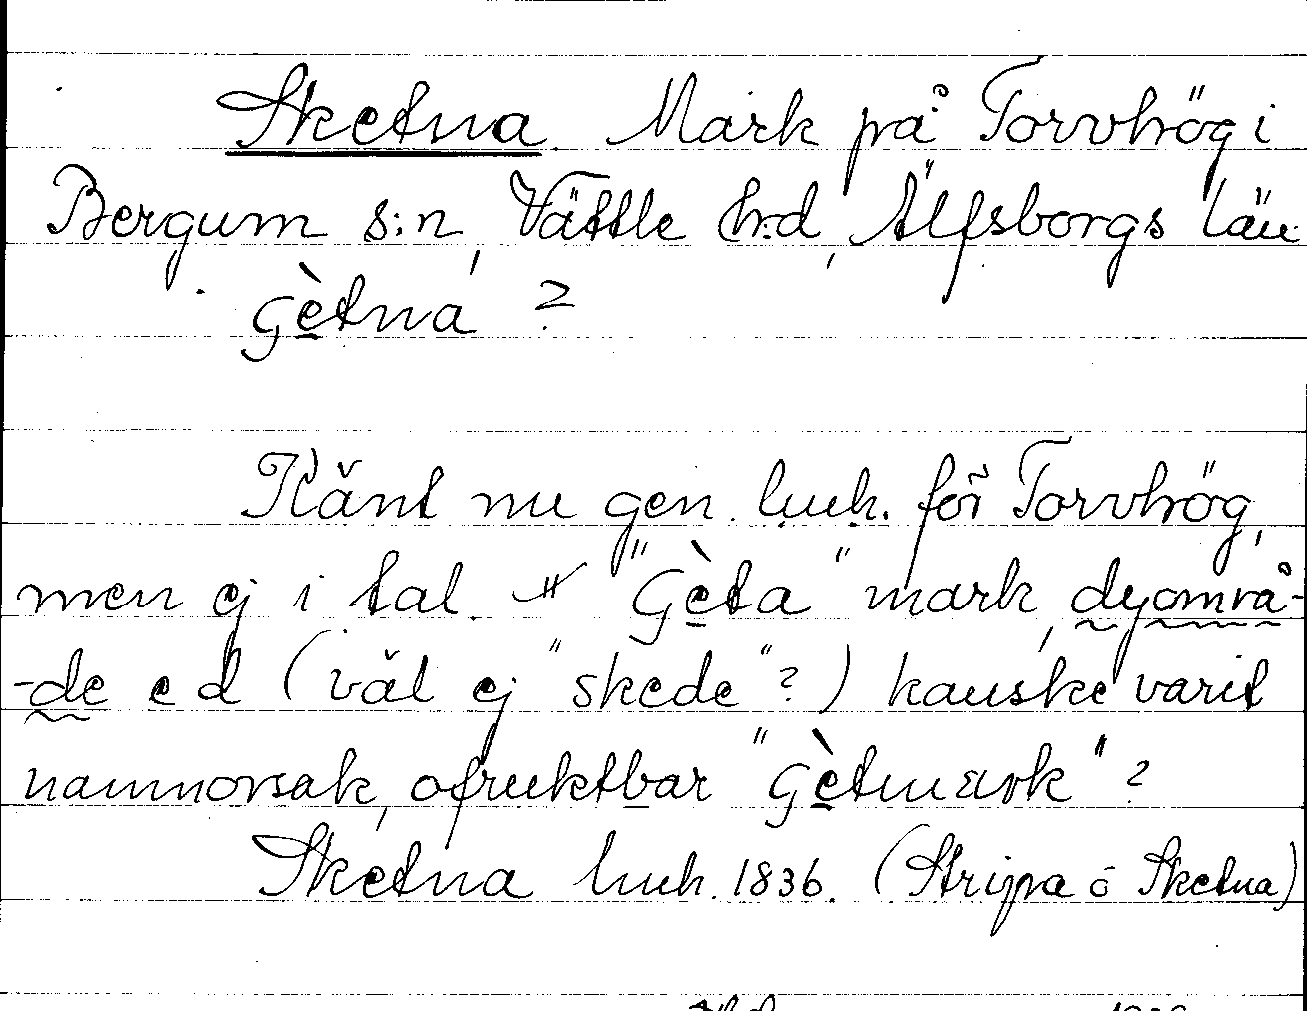 Sketna. Mark på Torvhög i
Bergum s:n, Vättle h:d, Älfsborgs län.
Gètna ?
Känt nu gen. luuh. för Torvhög,
men ej i tal. "Gèta" mark, dyområ-
-de e d (väl ej "skede"?) kanske varit
namnorsak, ofruktbar "Gètmark"?
Sketna luuh. 1836. (Stripa o Sketna)